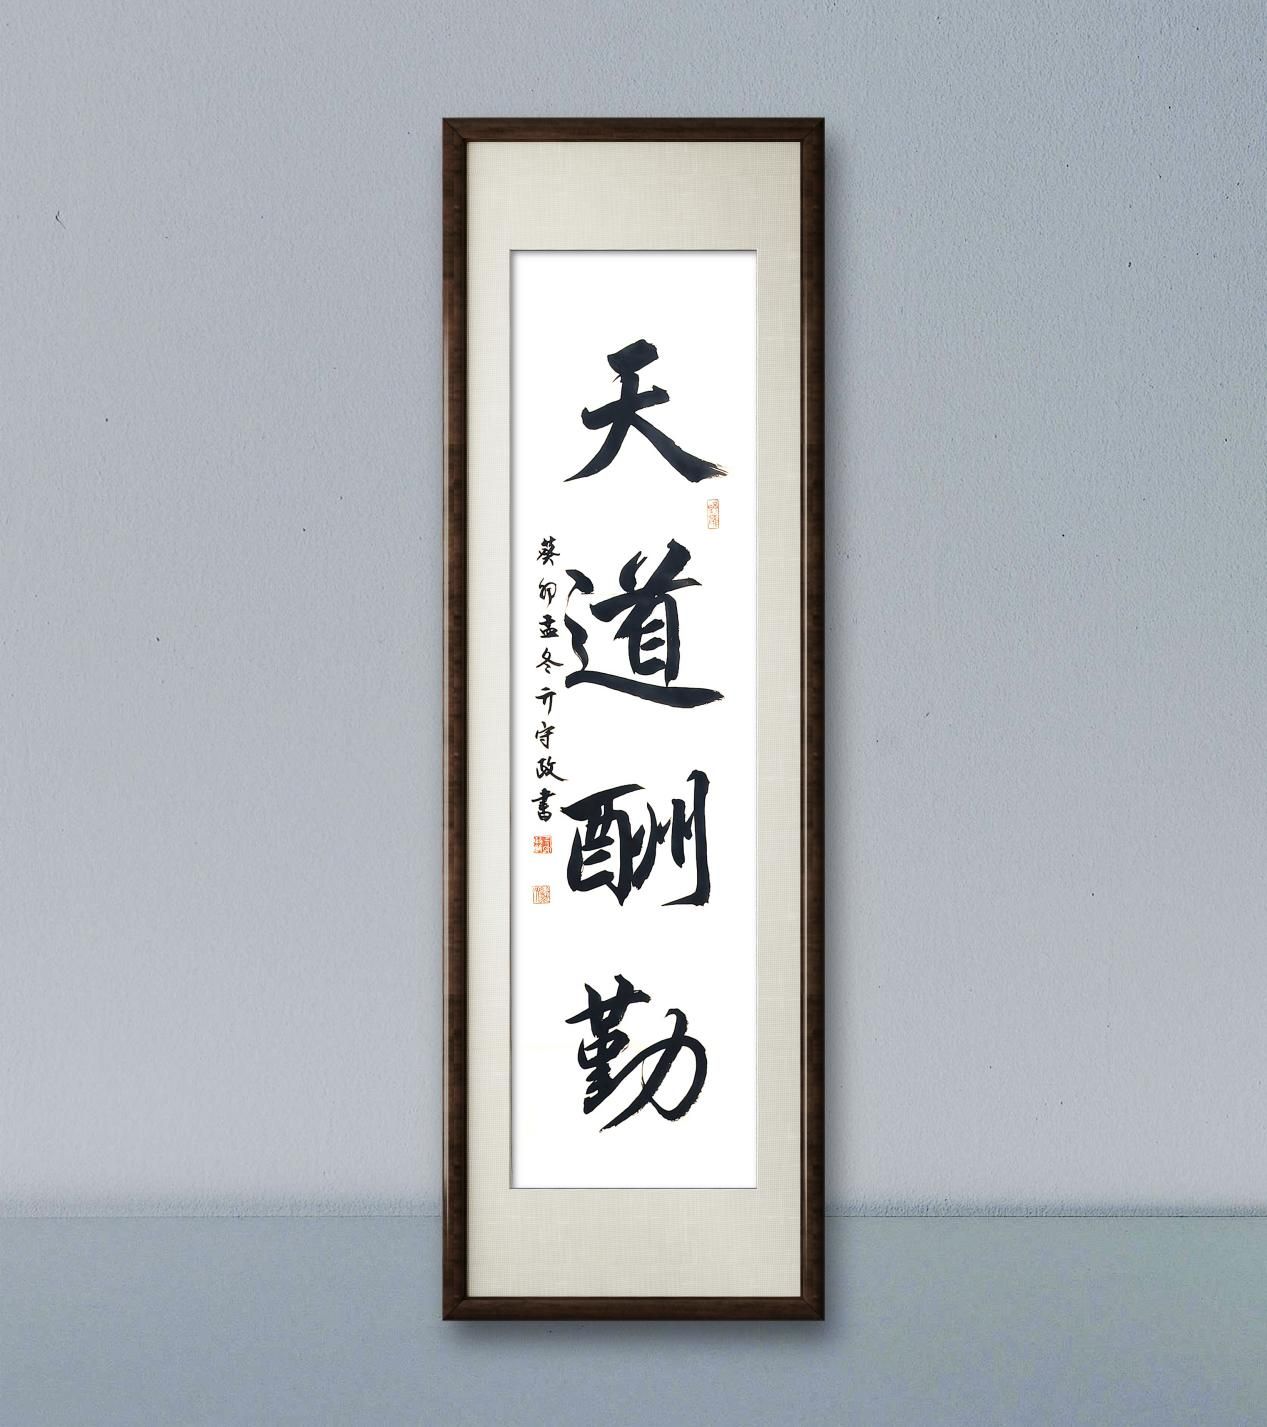 天道酬勤
癸卯孟冬亓守政書